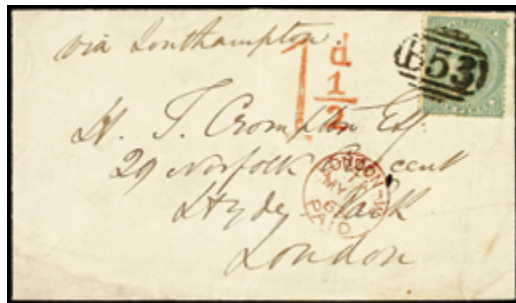 via Southampton.
1d
1/2
B53
H. T. Crompton Esq.
29 Norfolk Crescent
Hyde Park
London
LONDON-W
MY
6
PAID